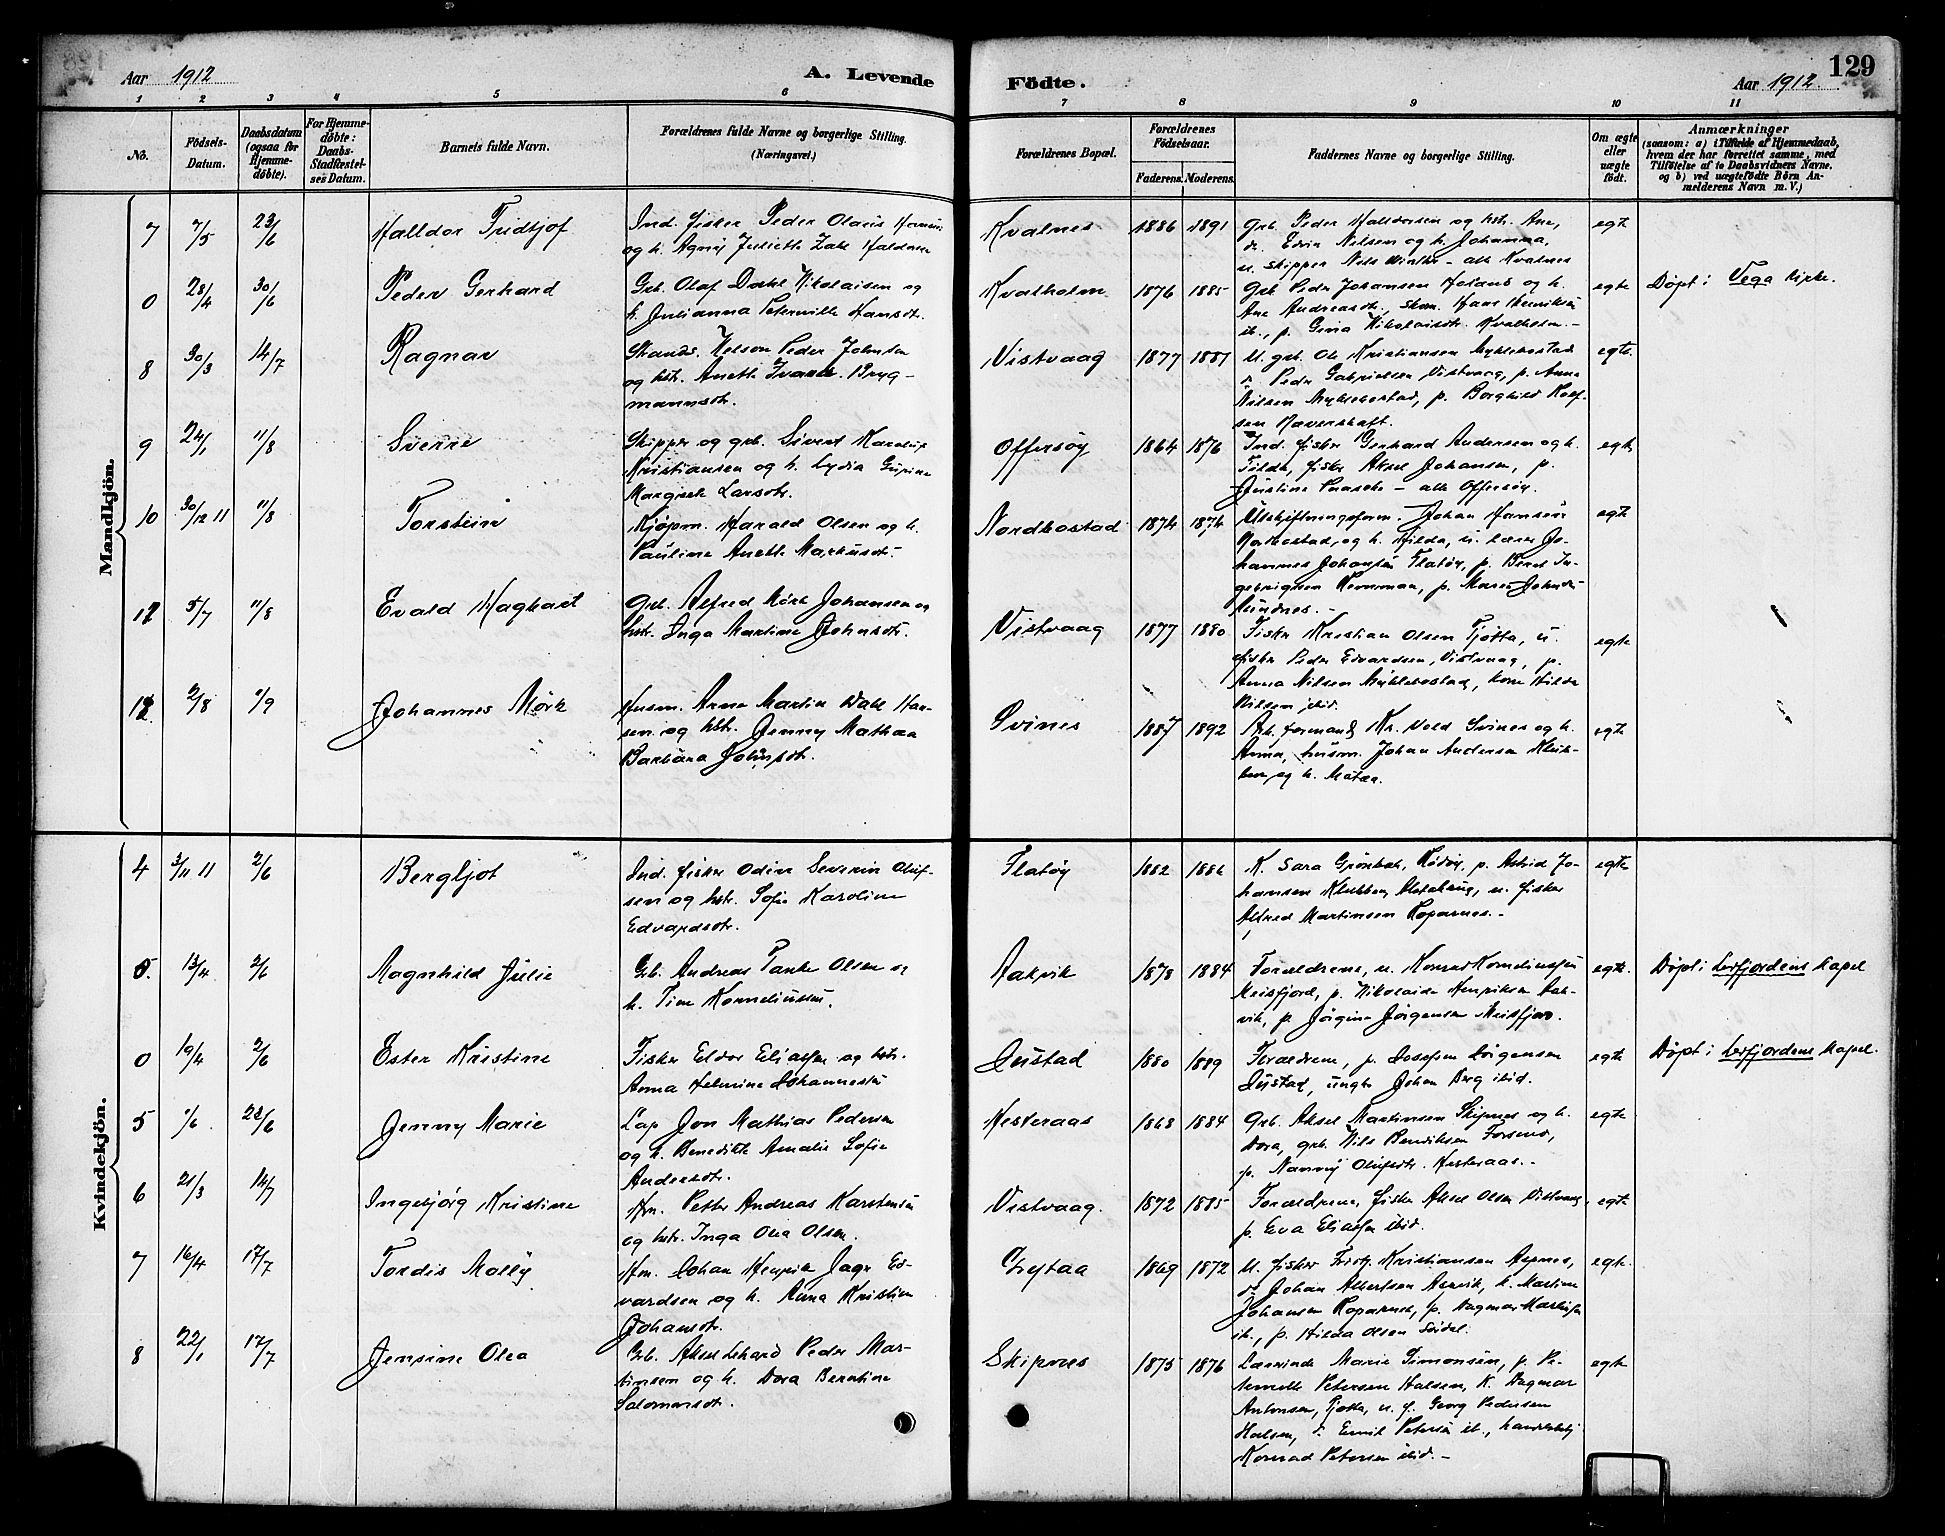 Aar 1912
A. Levende
Födte.
Aar 1912.
129
1 2 3 4 5 6 7 8 9 10 11
No.
Födsels-
Datum.
Daabsdatum
(ogsaa for
Hjemme-
döbte).
For Hjemme-
döbte:
Daabs-
Stadfæstel-
ses Datum.
Barnets fulde Navn.
Forældrenes fulde Navne og borgerlige Stilling.
(Næringsvei.)
Forældrenes Bopæl.
Forældrenes
Födselsaar.
Faderens. Moderens.
Faddernes Navne og borgerlige Stilling.
Om ægte
eller
uægte
födt.
Anmærkninger
(saasom: a) i Tilfælde af Hjemmedaab,
hvem der har forrettet samme, med
Tilföielse af to Daabsvidners Navne,
og b) ved uægtefödte Börn An-
melderens Navn m. V.)
Mandkjön.
7 7/5 23/6 Halldor Fridtjof
Ind. fisker Peder Olaus
og h. Agnij Julieth
Kvalnes 1886 1891
Grb. Peder Halldorsen og hstr. Ane,
Edvin Nilsen og h. Johanna,
u. skipper Nils - alle Kvalnes
egte
0 28/4 30/6 Peder Gerhard
Grb. Olaf Dahl Nikolaisen og
h. Julianna Peternille Hansdtr.
Kvalholm 1876 1885
Grb. Peder Johansen og h.
Ane Andreasdtr, Hans Henriksen
ib., p. Gina Nikolaisdtr. Kvalholm.-
egte Døpt i Vega kirke.
8 30/3 14/7 Ragnar
Strands. Nelson Peder Johnsen
og hstr. Aneth Bryg-
mannsdtr.
Vistvaag 1877 1887
U. grb. Ole Kristiansen Myklebostad
Peder Gabrielsen Vistvaag, p. Anna
Nilsen Myklebostad, p. Borghild Rolf-
sen
egte.
9 24/1 11/8 Sverre
Skipper og grb. Sivert
Kristiansen og h. Lydia
Larsdtr.
Offersøy 1864 1876
Ind. fisker Gerhard Andersen og h.
Tilda, fisker Aksel Johansen, p.
Justine - alle Offersøy.
egte
10 30/12 11 11/8 Torstein
Kjøpm. Harald Olsen og h.
Pauline Aneth Markusdtr.
Nordbostad 1874 1874
Utskiftningsform. Johan Hansen
Nordbostad, og h. Hilda, u. lærer Jo-
hannes Johansen Flatøy, p. Berit In-
gebrigtsen p. Maren
egte
11 5/7 11/8 Evald Haghart
Grb. Alfred Mörk Johansen og
hstr. Inga Martine Johnsdtr.
Vistvaag 1877 1880
Fisker Kristian Olsen Tjøtta, u.
fisker Peder Edvardsen, Vistvaag, p.
Anna Nilsen Myklebostad, Hilda
Nilsen ibid.
egte
12 2/8 1/9 Johannes Mörk
Husm. Arne Martin Dahl Han-
sen og hstr. Jenny Mathea
Barbara
Svines 1887 1892
Arb. formand Kr. Vold Svines og h.
Anna, husm. Johan Andersen
og h. Matea.
egte
Kvindekjön.
4 3/11 11 2/6 Bergljot
Ind. fisker Odin Severin Oluf-
sen og hstr. Sofie Karoline
Edvardsdtr.
Flatøy 1882 1886
K. Sara Rödöy, p. Astrid Jo-
hansen u. fisker
Alfred Martinsen Koparnes.-
egte
5. 13/4 2/6 Magnhild Julie
Grb. Andreas Tanke Olsen og
h. Tine Korneliussen.
Aakvik 1878 1884
Forældrene, u. Konrad Korneliussen
Meisfjord, p. Nikolaida Henriksen Aak-
vik, p. Jörgine Jörgensen Meisfjord.
egte. Döpt i Lerfjordens kapel
0 19/4 2/6 Ester Kristine
Fisker Eldor Eliassen og hstr.
Anna Helmine Johannessen
Justad 1880 1889
Forældrene, p. Josefine Jörgensen
Justad, ungkr Johan Berg ibid.
egte Døpt i Lerfjordens kapel.
5 1/6 22/6 Jenny Marie
Lap Jon Mathias Pedersen
og h. Benedikte Amalie Sofie
Andersdtr.
Hesteraas 1868 1884
Grb. Aksel Martinsen Skipnes og h.
Dora, grb. Nils Benriksen Forsmo,
p. Nanny Olufsdtr. Hesteraas.-
egte
6 21/3 14/7 Ingebjörg Kristine
Hm. Petter Andreas Karstensen
og hstr. Inga Olea Olsen.
Vistvaag. 1872 1885
Forældrene, fisker Aksel Olsen Vistvaag
p. Eva Eliassen ibid.
egte
7 16/4 17/7 Tordis Molly
Hm. Johan Henrik Ed-
vardsen og h. Anna Kristine
Johansdtr.
1869 1872
U. fisker Kristiansen
Johan Albertsen k. Martine
Johansen Koparnes, p. Dagmar
ib., p. Hilda Olsen
egte.
8 22/1 17/7 Jensine Olea
Grb. Aksel Lehard Peder Mar-
tinsen og h. Dora Berntine
Salomonsdtr.
Skipnes 1875 1876
Lærerinde Marie Simonsen, p. Pe-
ternelle Petersen Halsen, k. Dagmar
Antonsen, Tjötta, u. f. Georg Pedersen
Halsen, Emil Petersen ib.,
Konrad Petersen ibid.-
egte